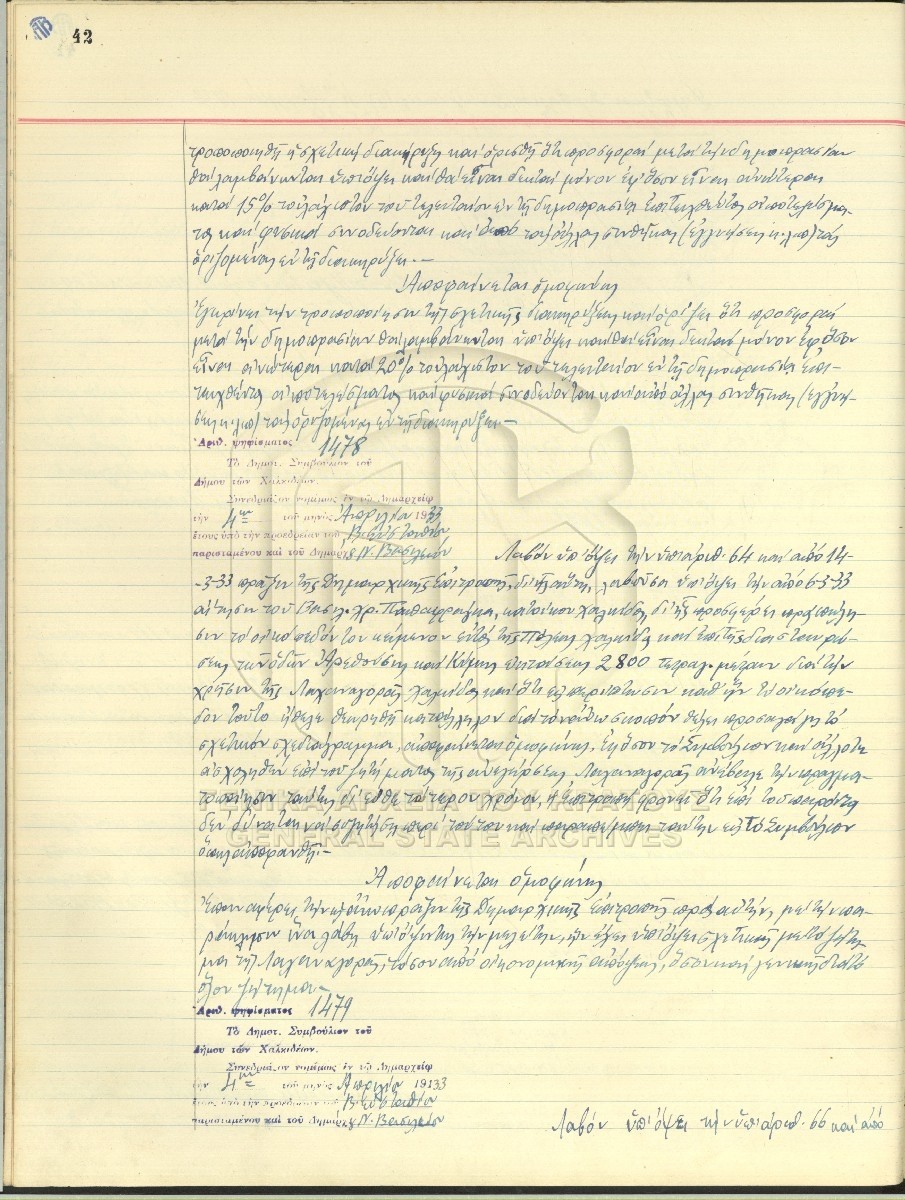 42
τροποποιηθῇ ἡ σχετικὴ διακήρυξη καὶ ὁρισθῇ ὅτι προσφοραὶ μετὰ τὴν δημοπρασίαν
θὰ λαμβάνωνται ὑπ' ὄψει καὶ θὰ εἶναι δεκταὶ μόνον ἐφ' ὅσον εἶναι ἀνώτεραι
κατὰ 15% τοὐλάχιστον τοῦ τελευταίου ἐν τῇ δημοπρασίᾳ ἐπιτευχθέντος ἀποτελέσμα-
τος καὶ φυσικὰ συνοδεύονται καὶ ἀπὸ τὰς ἄλλας συνθήκας (ἐγγυήσεις κ.λ.π.) τὰς
ὁριζομένας ἐν τῇ διακηρύξει.—
Ἀποφαίνεται ὁμοφώνως
Ἐγκρίνει τὴν τροποποίησιν τῆς σχετικῆς διακηρύξεως καὶ ὁρίζει ὅτι προσφοραὶ
μετὰ τὴν δημοπρασίαν θὰ λαμβάνωνται ὑπ' ὄψει καὶ θὰ εἶναι δεκταὶ μόνον ἐφ' ὅσον
εἶναι ἀνώτεραι κατὰ 20% τοὐλάχιστον τοῦ τελευταίου ἐν τῇ δημοπρασίᾳ ἐπι-
τευχθέντος ἀποτελέσματος καὶ φυσικὰ συνοδεύονται καὶ ἀπὸ ἄλλας συνθήκας (ἐγγυή-
σεις κ.λ.π.) τὰς ὁριζομένας ἐν τῇ διακηρύξει.—
Ἀριθ. ψηφίσματος 1478
Τὸ Δημοτ. Συμβούλιον τοῦ
Δήμου τῶν Χαλκιδέων.
Συνεδριάζον νομίμως ἐν τῷ Δημαρχείῳ
τὴν 4ην τοῦ μηνὸς Ἀπριλίου 1933
ἔτους ὑπὸ τὴν προεδρείαν τοῦ Β. Εὐσταθίου
παρισταμένου καὶ τοῦ Δημάρχ. Ν. Βασιλείου Λαβὸν ὑπ' ὄψει τὴν ὑπ' ἀριθ. 64 καὶ ἀπὸ 14-
-3-33 πρᾶξιν τῆς Δημαρχιακῆς Ἐπιτροπῆς, δι' ἧς αὕτη, λαβοῦσα ὑπ' ὄψει τὴν ἀπὸ 6-3-33
αἴτησιν τοῦ Βασιλ. Χρ. κατοίκου Χαλκίδος, δι' ἧς προσφέρει πρὸς πώλη-
σιν τὸ οἰκόπεδόν του κείμενον ἐντὸς τῆς πόλεως Χαλκίδος καὶ ἐπὶ τῆς διασταυρώ-
σεως τῶν ὁδῶν Ἀρεθούσης καὶ Κύμης ἐκτάσεως 2800 τετραγ. μέτρων διὰ τὴν
χρῆσιν τῆς Λαχαναγορᾶς Χαλκίδος καὶ ὅτι ἐν περιπτώσει καθ' ἣν τὸ οἰκόπε-
δον τοῦτο ἤθελε θεωρηθῇ κατάλληλον διὰ τὸν σκοπὸν θέλει προσαγάγῃ τὸ
σχετικὸν σχεδιάγραμμα, ἀποφαίνεται ὁμοφώνως, ἐφ' ὅσον τὸ Συμβούλιον καὶ ἄλλοτε
ἀσχοληθὲν ἐπὶ τοῦ ζητήματος τῆς ἀνεγέρσεως Λαχαναγορᾶς ἀνέβαλε τὴν πραγμα-
τοποίησιν ταύτης δι' εὐθετώτερον χρόνον, ἡ Ἐπιτροπὴ φρονεῖ ὅτι ἐπὶ τοῦ παρόντος
δὲν δύναται νὰ συζητήσῃ περὶ τούτου καὶ παραπέμπει ταύτην εἰς τὸ Συμβούλιον
Ἀποφαίνεται ὁμοφώνως
Ἐπαναφέρει τὴν πρᾶξιν τῆς Δημαρχιακῆς Ἐπιτροπῆς πρὸς αὐτήν, μὲ τὴν πα-
ράκλησιν ἵνα λάβῃ ὑπ' ὄψιν της τὴν μελέτην, ἣν ἔχει ὑπ' ὄψει σχετικῶς μὲ τὸ ζήτη-
μα τῆς Λαχαναγορᾶς, τόσον ἀπὸ οἰκονομικῆς ἀπόψεως, ὅσον καὶ γενικῆς διὰ τὸ
ὅλον ζήτημα.—
Ἀριθ. ψηφίσματος 1479
Τὸ Δημοτ. Συμβούλιον τοῦ
Δήμου τῶν Χαλκιδέων.
Συνεδριάζον νομίμως ἐν τῷ Δημαρχείῳ
τὴν 4ην τοῦ μηνὸς Ἀπριλίου 1933
ἔτους ὑπὸ τὴν προεδρείαν τοῦ Β. Εὐσταθίου
παρισταμένου καὶ τοῦ Δημάρχ. Ν. Βασιλείου Λαβὸν ὑπ' ὄψει τὴν ὑπ' ἀριθ. 66 καὶ ἀπὸ
ΓΕΝΙΚΑ ΑΡΧΕΙΑ ΤΟΥ ΚΡΑΤΟΥΣ
GENERAL STATE ARCHIVES